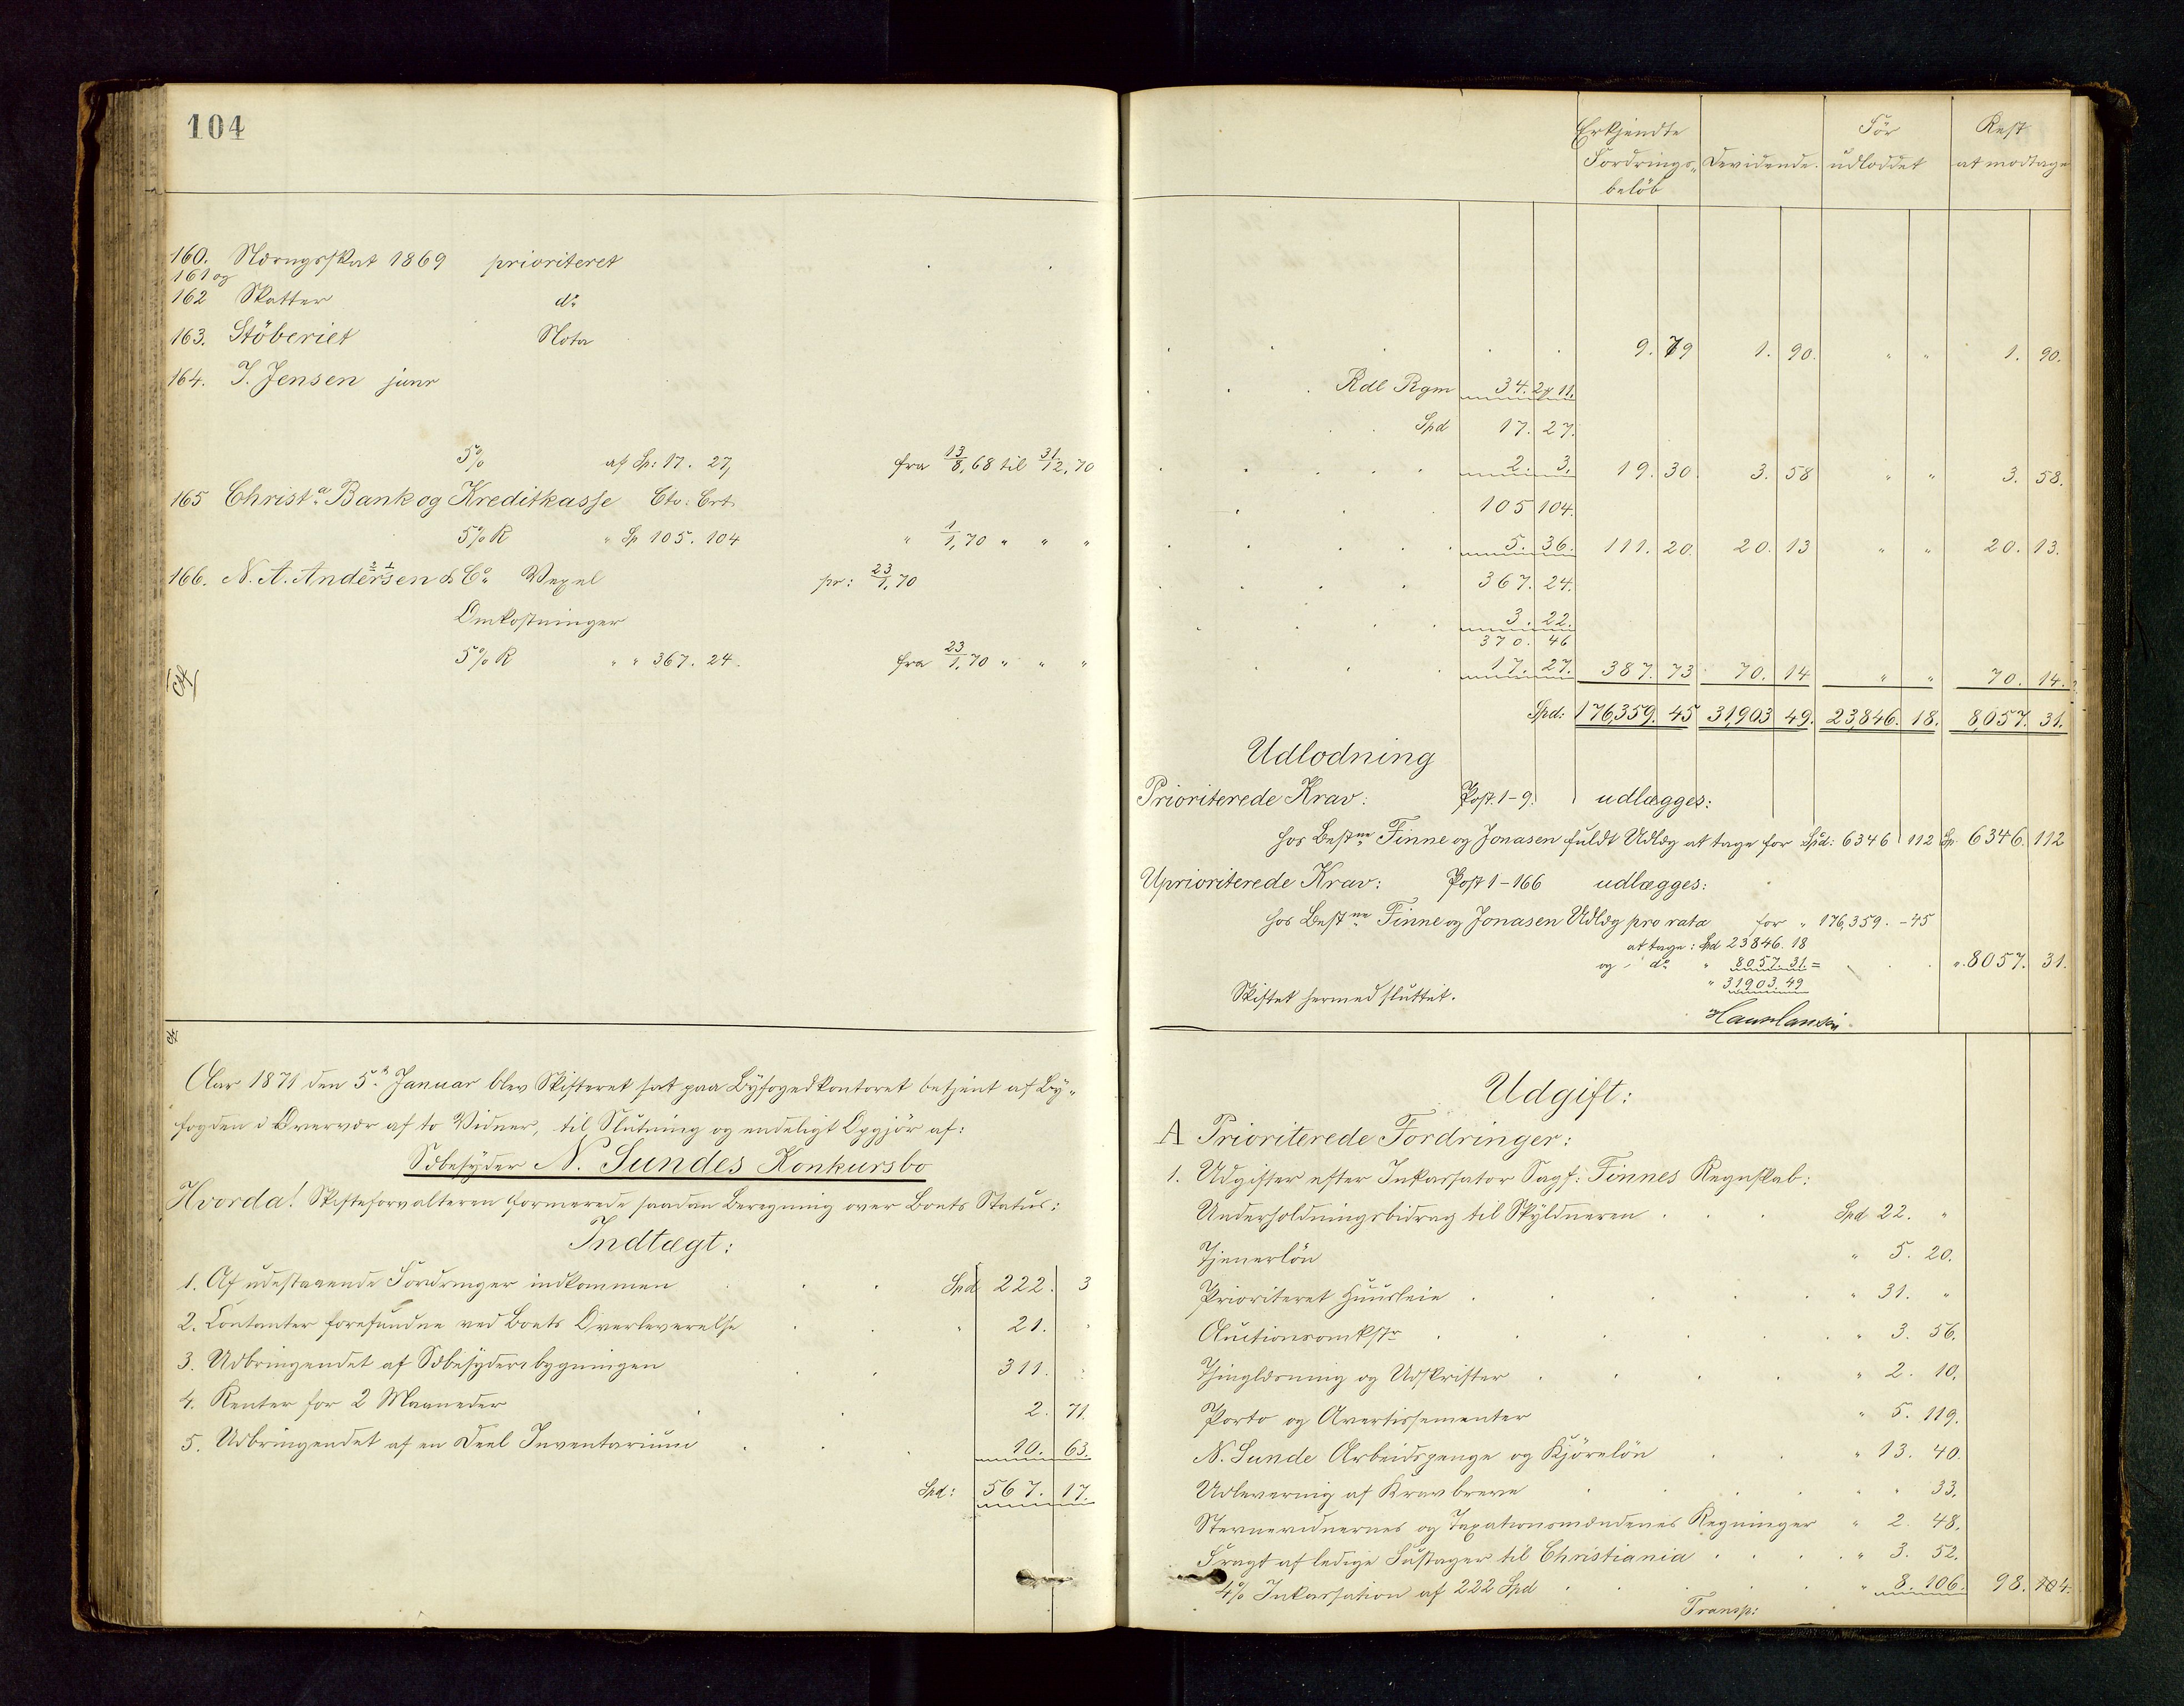 104
160. Næringsskat 1869 prioriteret
161 og
162 Skatter do
163. Stöberiet Nota
164. I. Jensen junr
5% af Sp: 17. 27, fra 13/8, 68 til 31/12, 70
165 Christa. Bank og Kreditkasse Cto. Crt.
5% R " Sp 105. 104 " 1/1, 70 " " "
166. N. A. Andersen & Co. Vexel pr: 23/1, 70
Omkostninger
5% R " " 367. 24. fra 23/1, 70 " " "
Aar 1871 den 5te Januar blev Skifteret sat paa Byfogedkontoret betjent af By-
fogden i Overvær af to Vidner, til Slutning og endeligt Opgjör af:
Sæbesyder N. Sundes Konkursbo
Hvorda! Skifteforvalteren formerede saadan Beregning over Boets Status:
Indtægt:
1. Af udestaaende Fordringer indkommen Spd 222. 3
2. Contanter forefundne ved Boets Overleverelse " 21. "
3. Udbringendet af Sæbesyderibygningen 311. "
4. Renter for 2 Maaneder 2. 71.
5. Udbringendet af en Deel Inventarium 10. 63.
Spd: 567. 17.
Erkjendte Fordrings- belöb
Devidende.
För udloddet
Rest at modtage
9. 79 1. 90. " " 1. 90.
Rdl Rgm 34. 2 11.
Spd 17. 27.
2. 3. 19. 30. 3. 58 " " 3. 58.
105 104.
5. 36. 111. 20. 20. 13 " " 20. 13.
367. 24.
3. 22.
370. 46
17. 27. 387. 73 70. 14 " " 70. 14.
Spd: 176,359. 45 31,903 49. 23,846. 18. 8,057. 31.
Udlodning
Prioriterede Krav: Post. 1-9. udlægges:
hos Bestne Finne og Jonasen fuldt Udlæg at tage for Spd: 6346 112 Sp. 6346. 112
Uprioriterede Krav: Post 1-166 udlægges:
hos Bestne Finne og Jonasen Udlæg pro rata for " 176,359. -45
at tage: Spd 23846. 18
og do " 8057. 31. = ". 8057. 31.
" 31903. 49
Skiftet hermed sluttet.
Udgift:
A Prioriterede Fordringer:
1. Udgifter efter Inkassator Sagf: Finnes Regnskab:
Underholdningsbidrag til Skyldneren Spd 22. "
Tjenerlön " 5. 20.
Prioriteret Huusleie " 31. "
Auctionsomkstr " 3. 56.
Thinglæsning og Udskrifter " 2. 10.
Porto og Avertissementer " 5. 119.
N. Sunde Arbeidspenge og Kjörelön " 13. 40.
Udlevering af Kravbreve " " 33.
Stevnevidnernes og Taxationsmændenes Regninger " 2. 48.
Fragt af ledige Fustager til Christiania " 3. 52.
4% Inkassation af 222 Spd " 8. 106. 98. 104.
Transp: